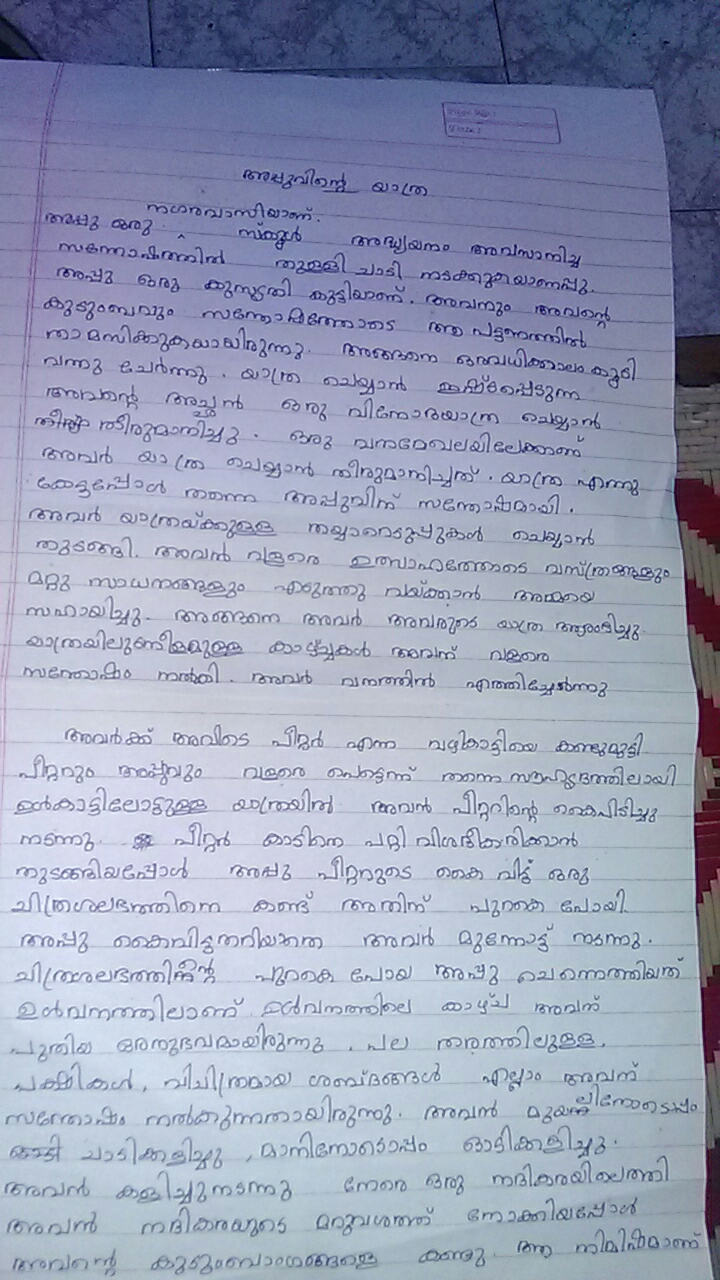 അപ്പുവിന്റെ യാത്ര
അപ്പു ഒരു നഗരവാസിയാണ്. സ്കൂൾ അദ്ധ്യയനം അവസാനിച്ച
സന്തോഷത്തിൽ തുള്ളി ചാടി നടക്കുകയാണപ്പു.
അപ്പു ഒരു കുസൃതി കുട്ടിയാണ്. അവനും അവന്റെ
കുടുംബവും സന്തോഷത്തോടെ ആ പട്ടണത്തിൽ
താമസിക്കുകയായിരുന്നു. അങ്ങനെ ഒരവധിക്കാലം കൂടി
വന്നു ചേർന്നു. യാത്ര ചെയ്യാൻ ഇഷ്ടപ്പെടുന്ന
അവന്റെ അച്ഛൻ ഒരു വിനോദയാത്ര ചെയ്യാൻ
തീരുമാനിച്ചു. ഒരു വനമേഖലയിലേക്കാണ്
അവർ യാത്ര ചെയ്യാൻ തീരുമാനിച്ചത്. യാത്ര എന്നു
കേട്ടപ്പോൾ തന്നെ അപ്പുവിന് സന്തോഷമായി.
അവർ യാത്രയ്ക്കുള്ള തയ്യാറെടുപ്പുകൾ ചെയ്യാൻ
തുടങ്ങി. അവൻ വളരെ ഉത്സാഹത്തോടെ വസ്ത്രങ്ങളും
മറ്റു സാധനങ്ങളും എടുത്തു വയ്ക്കാൻ അമ്മയെ
സഹായിച്ചു. അങ്ങനെ അവർ അവരുടെ യാത്ര ആരംഭിച്ചു.
യാത്രയിലുടനീളമുള്ള കാഴ്ച്ചകൾ അവന് വളരെ
സന്തോഷം നൽകി. അവർ വനത്തിൽ എത്തിച്ചേർന്നു
അവർക്ക് അവിടെ പീറ്റർ എന്ന വഴികാട്ടിയെ കണ്ടുമുട്ടി
പീറ്ററും അപ്പുവും വളരെ പെട്ടെന്ന് തന്നെ സൗഹൃദത്തിലായി
ഉൾകാട്ടിലോട്ടുള്ള യാത്രയിൽ അവൻ പീറ്ററിന്റെ കൈപിടിച്ചു
നടന്നു. പീറ്റർ കാടിനെ പറ്റി വിശദീകരിക്കാൻ
തുടങ്ങിയപ്പോൾ അപ്പു പീറ്ററുടെ കൈ വിട്ട് ഒരു
ചിത്രശലഭത്തിനെ കണ്ട് അതിന് പുറകെ പോയി.
അപ്പു കൈവിട്ടതറിയാതെ അവർ മുന്നോട്ട് നടന്നു.
ചിത്രശലഭത്തിന്റെ പുറകെ പോയ അപ്പു ചെന്നെത്തിയത്
ഉൾവനത്തിലാണ്. ഉൾവനത്തിലെ കാഴ്ച അവന്
പുതിയ ഒരനുഭവമായിരുന്നു. പല തരത്തിലുള്ള
പക്ഷികൾ, വിചിത്രമായ ശബ്ദങ്ങൾ എല്ലാം അവന്
സന്തോഷം നൽകുന്നതായിരുന്നു. അവൻ മുയലിനോടൊപ്പം
ചാടിക്കളിച്ചു, മാനിനോടൊപ്പം ഓടിക്കളിച്ചു.
അവൻ കളിച്ചുനടന്നു നേരെ ഒരു നദികരയിലെത്തി
അവൻ നദികരയുടെ മറുവശത്ത് നോക്കിയപ്പോൾ
അവന്റെ കുടുംബാംഗങ്ങളെ കണ്ടു. ആ നിമിഷമാണ്